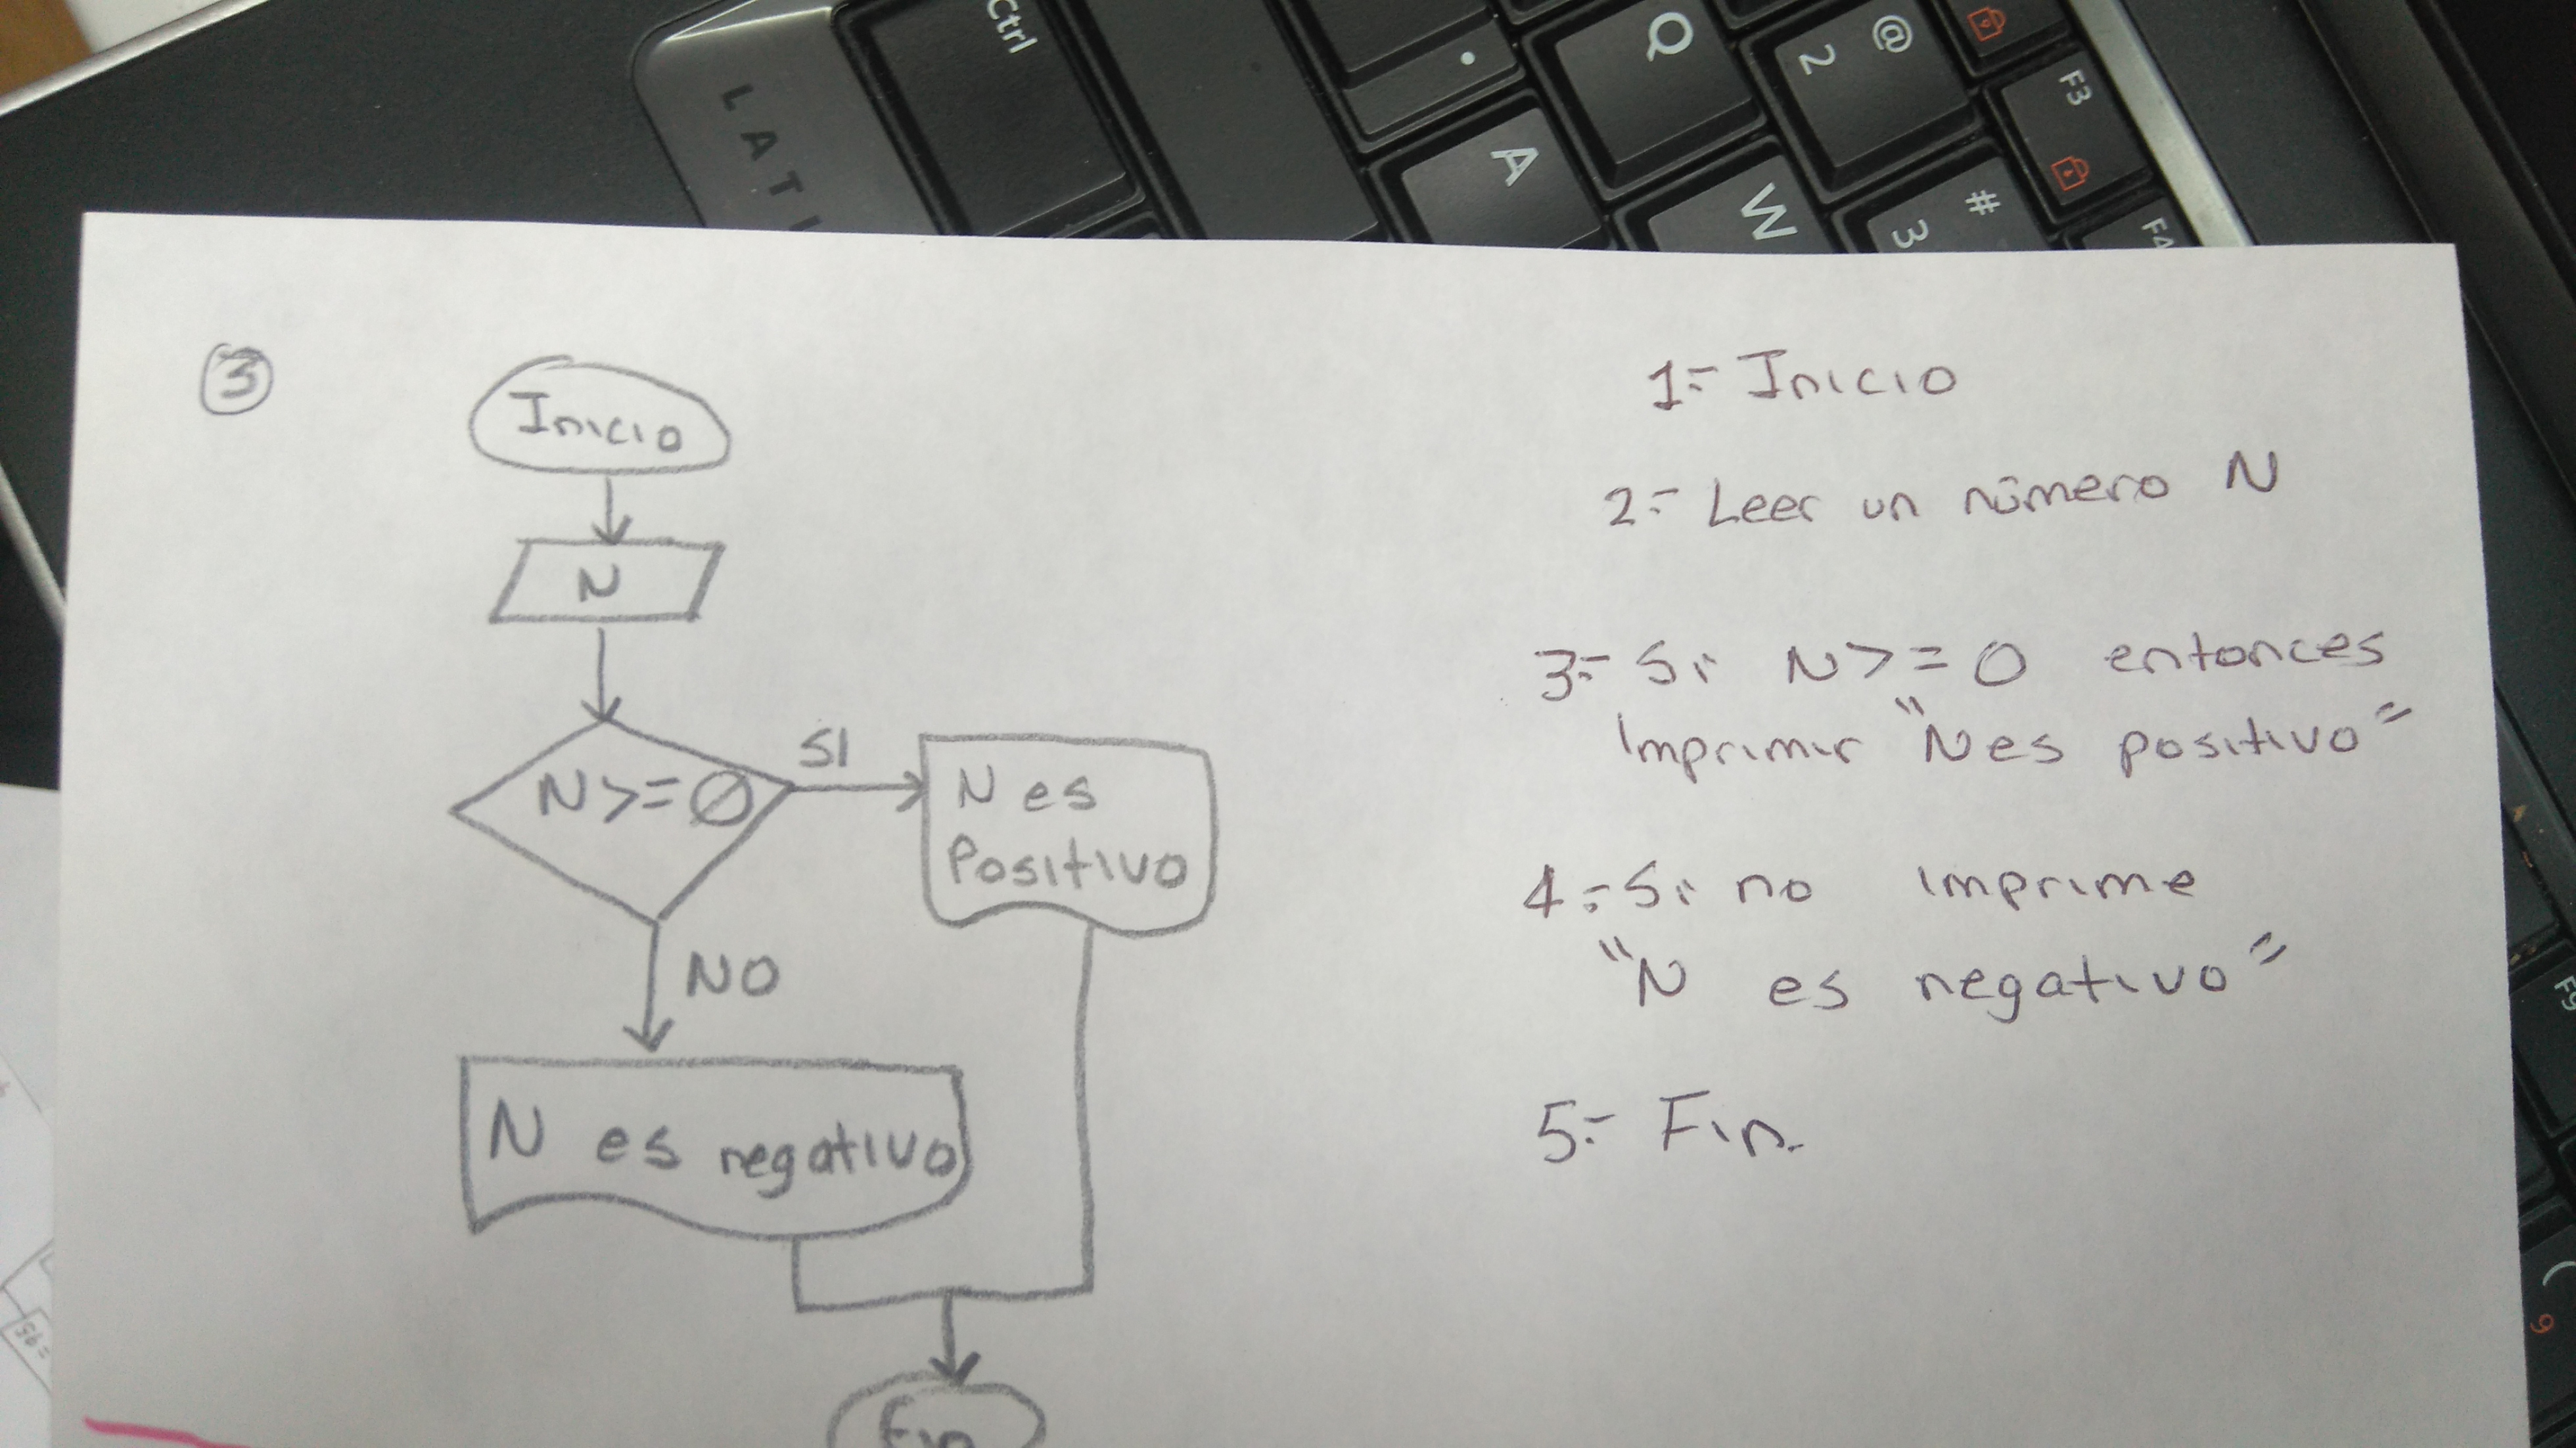 Ctrl
LATI
Q
@
2
F3
A
W
#
3
F4
3
Inicio
N
N>=0
SI
N es
Positivo
NO
N es negativo
Fin
1.- Inicio
2.- Leer un número N
3.- Si N>=0 entonces
Imprimir "N es positivo"
4.- Si no imprime
"N es negativo"
5.- Fin.
F9
(
9